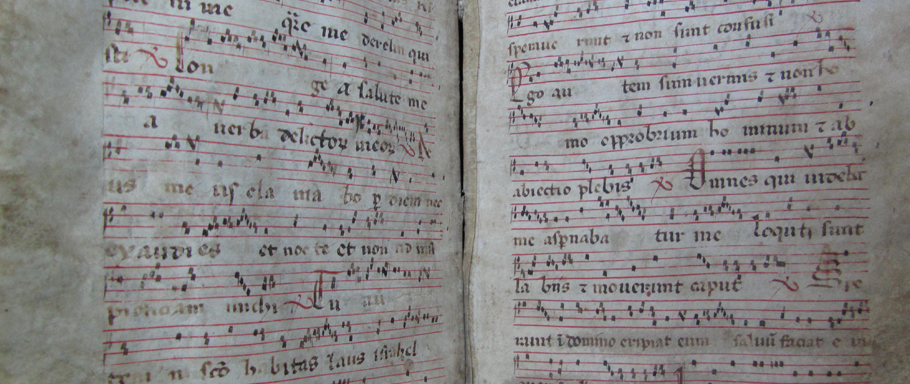 me qre me derelin qui
sti Lon
ge a salute me
a verba delictoꝝ meoꝝ
us me us cla ma bo p diem nec
exaudies et nocte et non ad insi
pientiam michi Tu au
in scō habitas laus israhel
speraue runt ⁊ non sunt confusi
Ego au tem sum uermis ⁊ non ho
mo opprobrium ho minum ⁊ ab
abiectio plebis Omnes qui uideb
me aspnaba tur me loquti sunt
la biis ⁊ mouerunt caput Spe
runt ī domino eripiat eum saluū faciat e